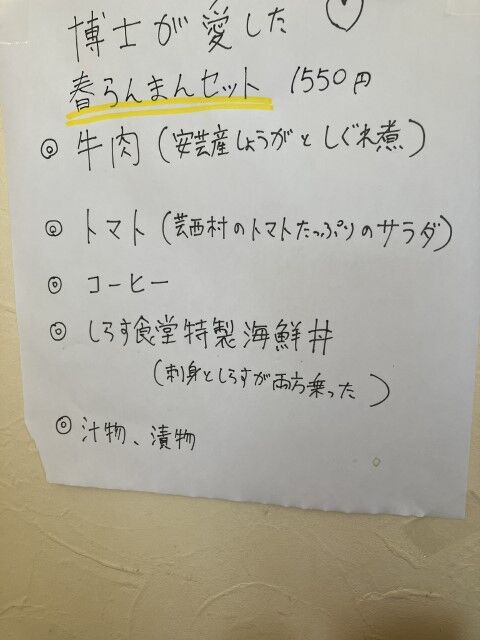 博士が愛した
春らんまんセット 1550円
◎ 牛肉(安芸産しょうがとしぐれ煮)
◎ トマト(芸西村のトマトたっぷりのサラダ)
◎ コーヒー
◎ しらす食堂特製海鮮丼
(刺身としらすが両方乗った)
◎ 汁物、漬物